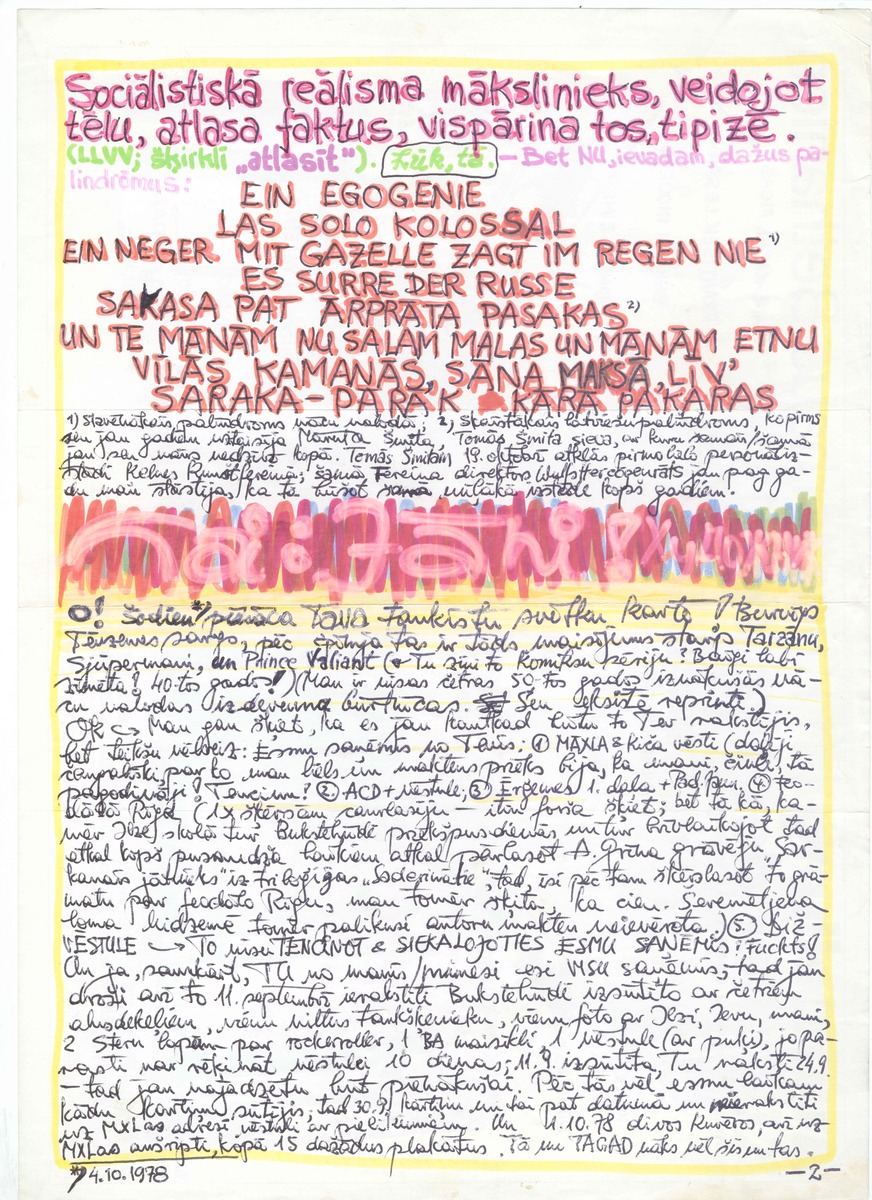 Sociālistiskā reālisma mākslinieks, veidojot
tēlu, atlasa faktus, vispārina tos, tipizē.
(LLVV; šķirklī „atlasīt"). Lūk, tā. — Bet NU, ievadam, dažus pa-
lindrōmus:
EIN EGOGENIE
LAS SOLO KOLOSSAL
EIN NEGER MIT GAZELLE ZAGT IM REGEN NIE 1)
ES SURRE DER RUSSE
SAKASA PAT ĀRPRĀTA PASAKAS 2)
UN TE MĀNĀM NU SALAM MALAS UN MĀNĀM ETNU
VĪLĀS KAMANĀS, SĀNA MAKSĀ, LĪV'
SARAKA-PARA'K KARA PA'KARAS
1) slavenākais palindroms vācu valodā; 2) skaistākais latviešu palindroms, ko pirms
jau gadiem Maruta Šmita, Tomas Šmita sieva, ar kuru
jau sen vairs nedzīvo kopā. Tomas Šmitam 19. oktobrī atklās pirmo lielo personāliz-
stādi Ķelnes Kunstfereinā; šamā Fereina direktors jau pag ga-
du man stāstīja, ka tā būšot mīļākā izstāde kopš gadiem.
ai: Jāni!
O! Šodien*) pienāca Tava tankistu svētku karte! Burvīgs
Tēvzemes sargs, pēc ģīmja tas ir tāds maisījums starp Tarzānu,
Sjūpermani, un Prince Valiant (Tu zini to komiksu sēriju? Baigi labi
zīmēta! 40-tos gados!) (Man ir visas četras 50-tos gados iznākušās vā-
cu valodas izdevuma burtnīcas. Sen eksistē reprinti.)
Ok → Man gan šķiet, ka es jau kautkad būtu to Tev rakstījis,
bet teikšu vēlreiz: Esmu saņēmis no Tevis: ① MAXLA & Kiča vēsti (daļēji
čempatiski, par ko man liels un prieks bija, ka mani, tā
pagodināji! Tencinu! ② ACD + vēstule, ③ Ērgemes 1. daļa + ④ Feo-
dālā Rīga (1x šķērsām caurlasīju — itin forša šķiet; bet tā kā, ka-
mēr Ilze skolā tur Bukstehūdē priekšpusdienās un tur brīvlaikojot tad
atkal kopš pusgadsimta atkal pārlasot A. Grīna grāvēju „Sar-
kanais jātnieks" iz triloģijas „Saderinātie", tad, īsi pēc tam šķērslasot to grā-
matu par feodālo Rīgu, man tomēr šķita, ka cien. Šaremētjeva
loma Vidzemē tomēr palikusi autoru neievērota.) ⑤ Biž-
VĒSTULE → TO visu TENCINOT & SIEKALOJOTIES ESMU SAŅĒMIS! Fuckts!
Un ja, savukārt, TU no manis/mūmēsi esi VISU saņēmis, tad jau
droši arī to 11. septembrī ierakstītā Bukstehūdē izsūtīto ar četriem
alusdekeļiem, vienu viltus tankšķenieku, vienu foto ar Ilzi, Ievu, mani,
2 Stern lapām par rockeroller, 1 BA maisiķli, 1 vēstule (ar puķi), jo pa-
rasti var rēķināt vēstulei 10 dienas; 11.9. izsūtīta, Tu rakstīji 24.9.
— tad jau vajadzētu būt pienākušai. Pēc tās vēl esmu laikam
kādu kartiņu sūtījis, tad 30.9. kartiņu un tai pat datumā un ierakstīti
uz MXLas adresi vēstuli ar pielikumiem. Un 1.10.78 divos kuvēros, arī uz
MXLas anšripti, kopā 15 dažādus plakātus. Tā nu TAGAD nāks vēl šis un tas.
*) 4.10.1978
—2—